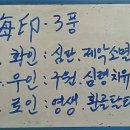 海印: 3풍
화인: 심판. 제악소멸
우인: 구원. 심령치유
로인: 영생